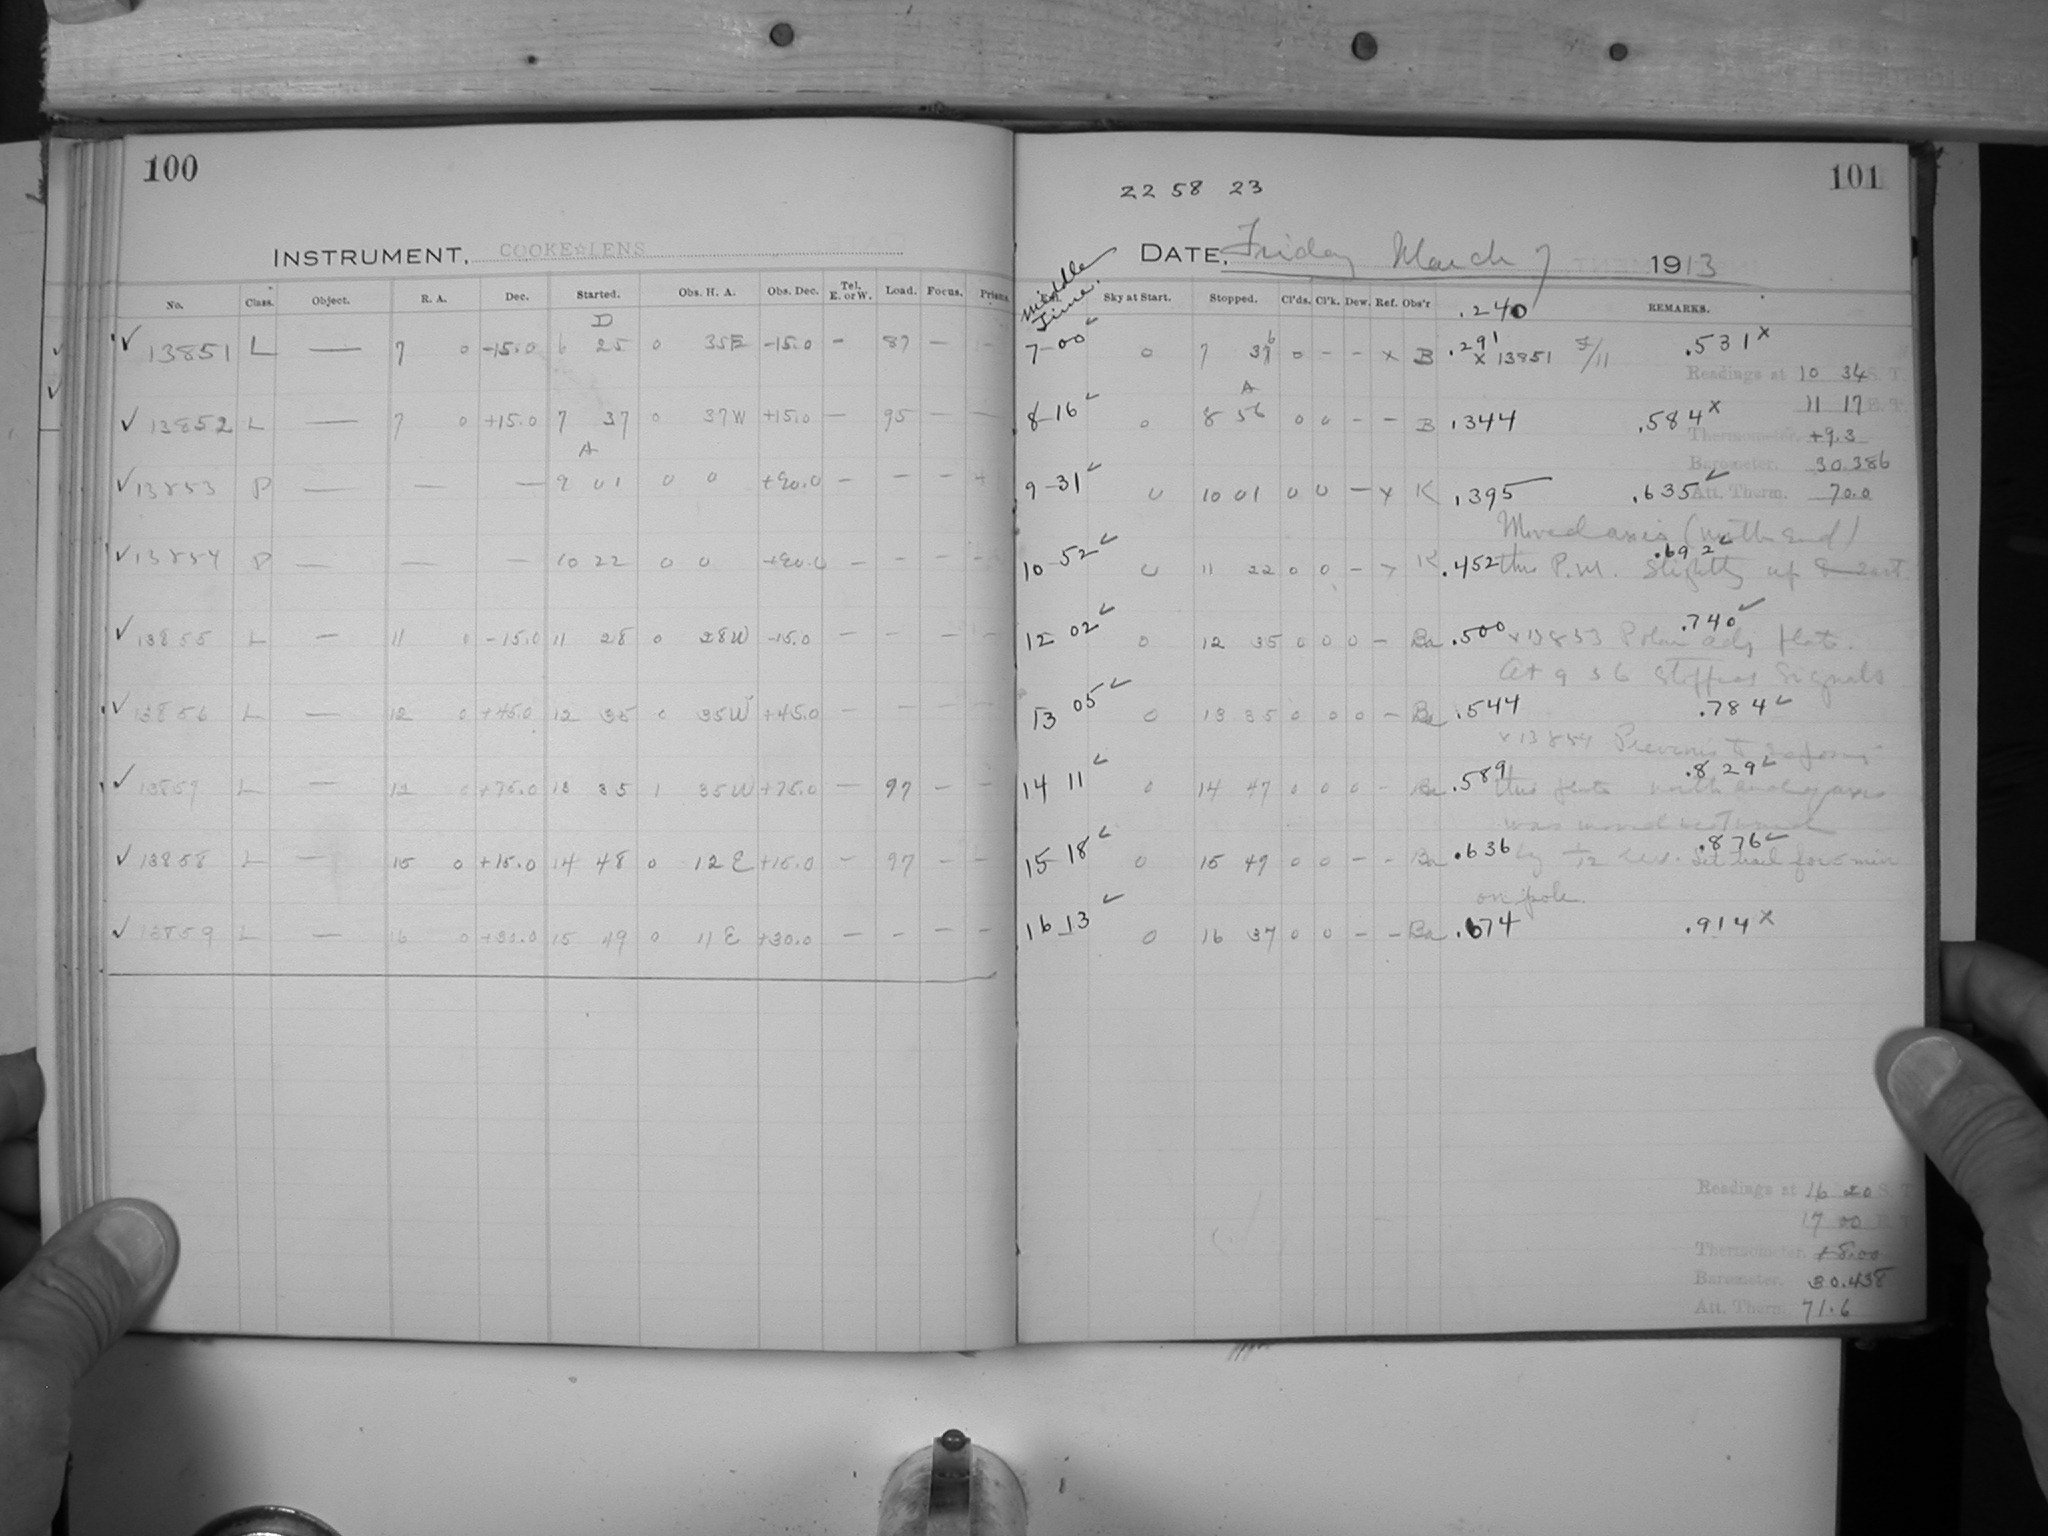 100
INSTRUMENT. COOKE☆LENS
No. Class. Object. R. A. Dec. Started. Obs. H. A. Obs. Dec. Tel. E. or W. Load. Focus. Prisms.
D
✓ 13851 L — 7 0 -15.0 6 25 0 35E -15.0 - 87 - -
✓ 13852 L — 7 0 +15.0 7 37 0 37W +15.0 — 95 — —
A
✓ 13853 P — — — 9 01 0 0 +90.0 - - - +
✓ 13854 P — — — 10 22 0 0 +90.0 - - - -
✓ 13855 L — 11 0 -15.0 11 28 0 28W -15.0 - - - -
✓ 13856 L — 12 0 +45.0 12 35 0 35W +45.0 - - - -
✓ 13857 L — 12 0 +75.0 13 35 1 35W +75.0 — 97 - -
✓ 13858 L — 15 0 +15.0 14 48 0 12E +15.0 - 97 - -
✓ 13859 L — 16 0 +30.0 15 49 0 11E +30.0 — - - -
101
22 58 23
DATE. Friday March 7 1913
Middle Time. Sky at Start. Stopped. Cl'ds. Cl'k. Dew. Ref. Obs'r .240 REMARKS.
7-00 ✓ 0 7 37 0 - - x B .291 x 13851 .531 x
Readings at 10 34 S. T.
11 17 E. T.
A
8-16 ✓ 0 8 56 0 0 - - B .344 .584 x
Thermometer. +9.3
Barometer. 30.386
9-31 ✓ 0 10 01 0 0 - x K .395 .635 ✓ Att. Therm. 70.0
Moved axis (north end)
10-52 ✓ 0 11 22 0 0 - K .452 .692 ✓
this P.M. slightly up
12 02 ✓ 0 12 35 0 0 0 - Ba .500 .740 ✓
x 13853 Polar adj plate.
At 9 56 stopped signals
13 05 ✓ 0 13 35 0 0 0 - Ba .544 .784 ✓
x 13854 Previous to
14 11 ✓ 0 14 47 0 0 0 - Ba .589 .829 ✓
this plate north end of axis
was moved
15-18 ✓ 0 15 49 0 0 - - Ba .636 .876 ✓
by 1/12 rev. Let trail for 5 min
on pole.
16-13 ✓ 0 16 37 0 0 - - Ba .674 .914 x
Readings at 16 20 S. T.
17 00
Thermometer. +8.00
Barometer. 30.438
Att. Therm. 71.6